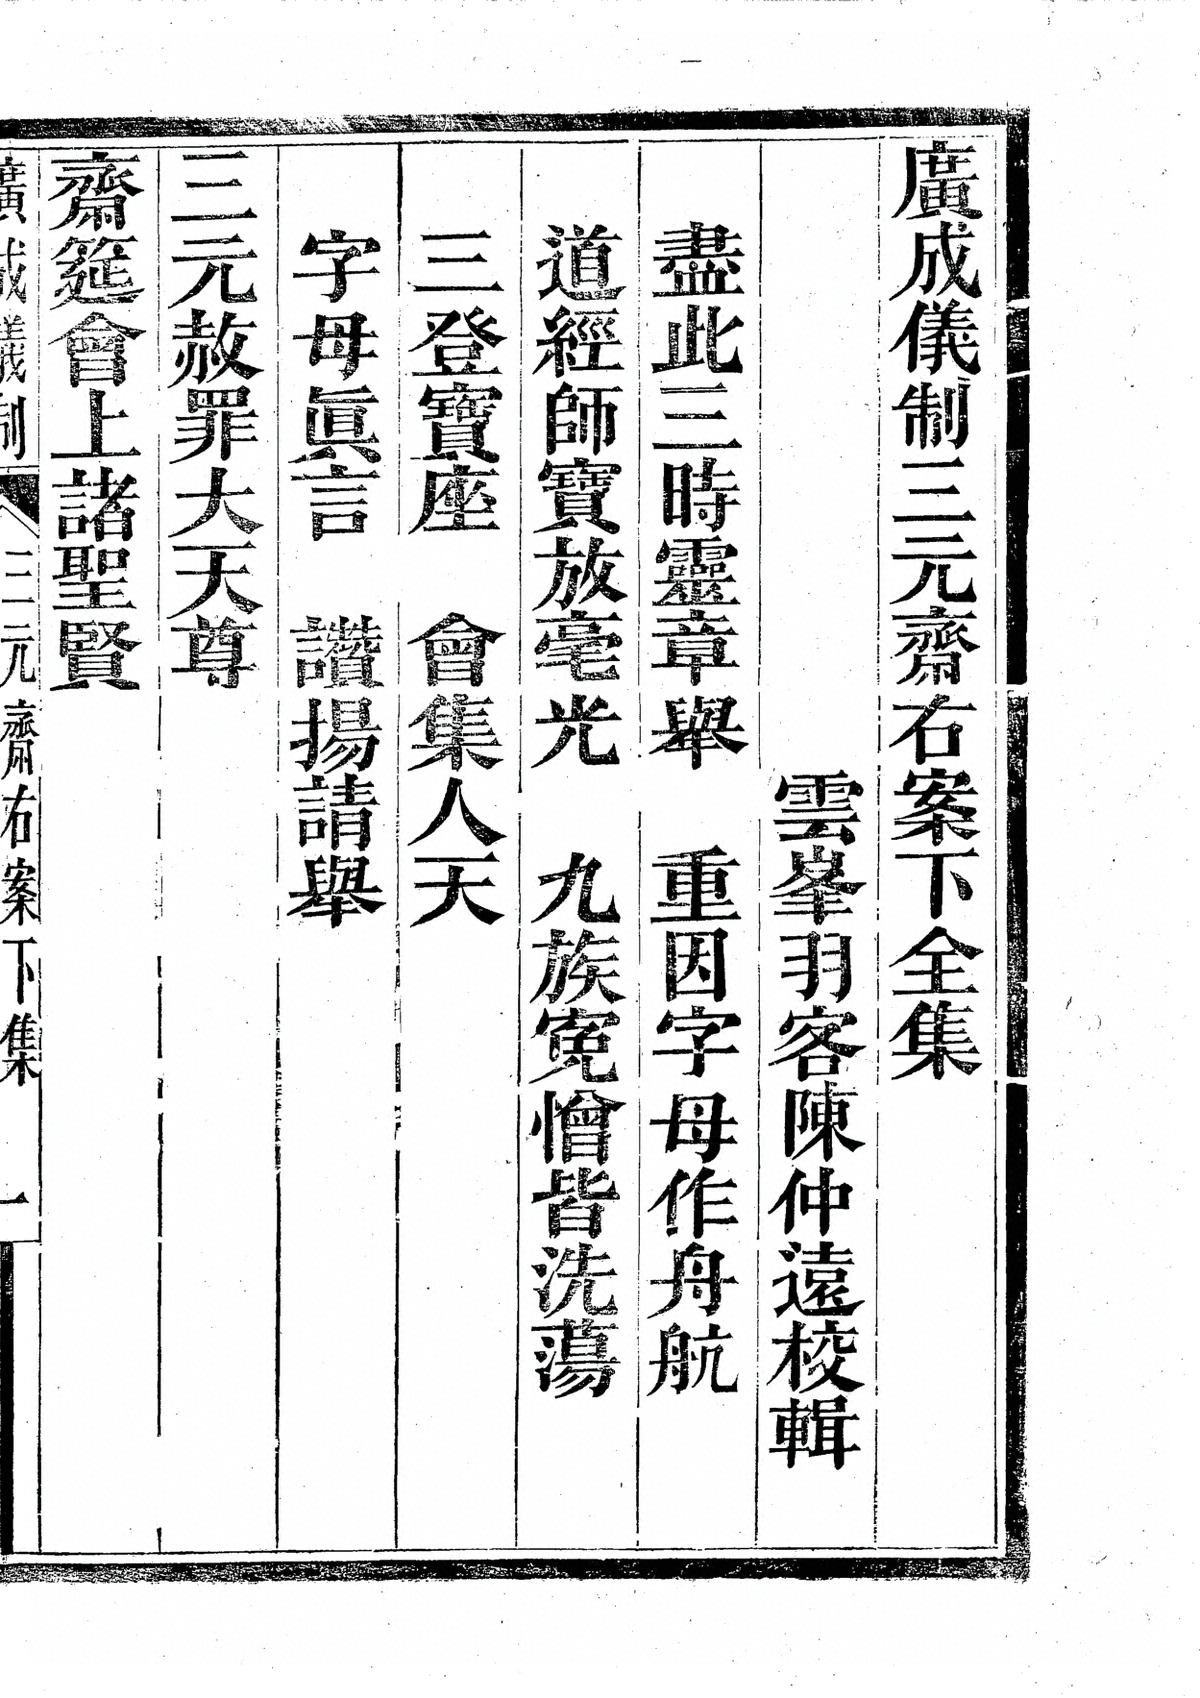 廣成儀制三元齋右案下全集
雲峯羽客陳仲遠校輯
盡此三時靈章舉　重因字母作舟航
道經師寶放毫光　九族寃憎皆洗蕩
三登寶座　會集人天
字母眞言　讚揚請舉
三元赦罪大天尊
齋筵會上諸聖賢
廣成儀制　三元齋右案下集　一